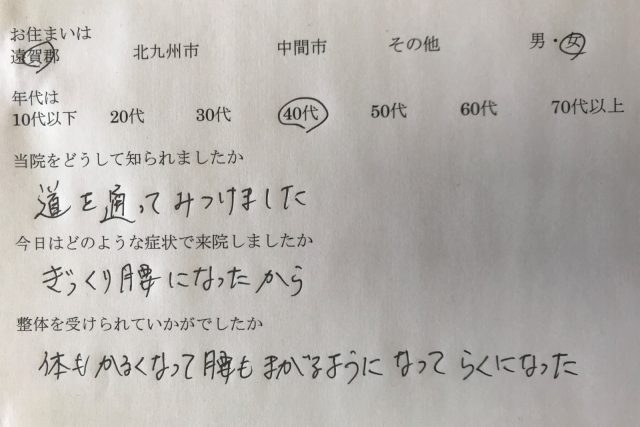 お住まいは
遠賀郡 北九州市 中間市 その他 男・女
年代は
10代以下 20代 30代 40代 50代 60代 70代以上
当院をどうして知られましたか
道を通ってみつけました
今日はどのような症状で来院しましたか
ぎっくり腰になったから
整体を受けられていかがでしたか
体もかるくなって腰もまがるようになってらくになった